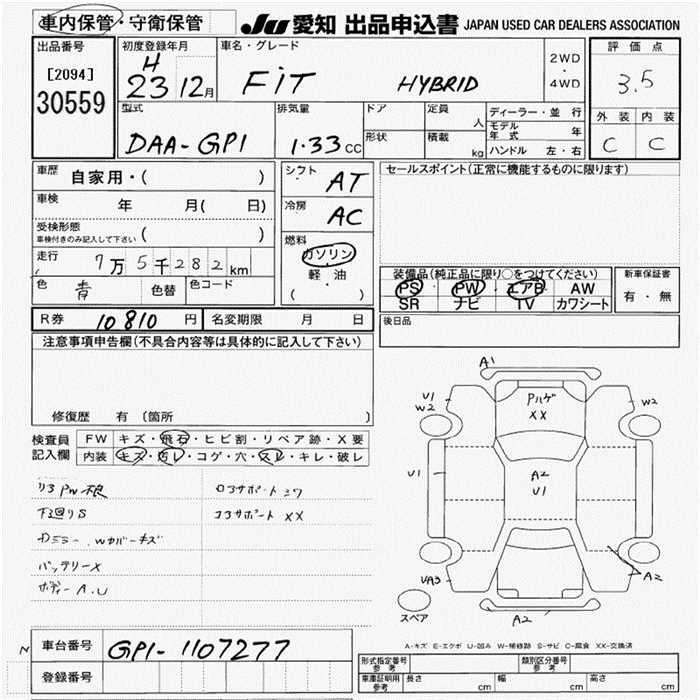 車内保管・守衛保管
JU 愛知 出品申込書 JAPAN USED CAR DEALERS ASSOCIATION
出品番号
[2094]
30559
初度登録年月
H
23 12月
車名・グレード
FiT HYBRID
2WD
・
4WD
評価点
3.5
外装 内装
C C
型式
DAA-GP1
排気量
1.33 CC
ドア
定員
人
形状
積載
kg
ディーラー・並行
モデル年式 年
ハンドル 左・右
車歴 自家用・( )
車検 年 月( 日)
受検形態
車検付きのみ記入して下さい ( )
走行 7万5千282km
色 青 色替 色コード
シフト AT
冷房 AC
燃料
ガソリン
軽油
( ・ )
セールスポイント(正常に機能するものに限ります)
装備品(純正品に限り○をつけてください)
PS PW エアB AW
SR ナビ TV カワシート
新車保証書
有・無
R券 10810 円 名変期限 月 日
後日品
注意事項申告欄(不具合内容等は具体的に記入して下さい)
修復歴 有 〔箇所 〕
検査員記入欄
FW キズ・飛石・ヒビ割・リペア跡・X要
内装 キズ・汚レ・コゲ・穴・スレ・キレ・破レ
下廻りS
バッテリーX
ボディーA.U
ロアサポートニワ
コアサポート XX
A1
U1
W2
Pハゲ
XX
W2
U1
A2
U1
UA3
A2
A2
スペア
A-キズ E-エクボ U-凹み W-補修跡 S-サビ C-腐食 XX-交換済
N 車台番号 GP1-1107277
登録番号
形式指定番号 参考
類別区分番号 参考
車庫証明用 参考 長さ cm 幅 cm 高さ cm